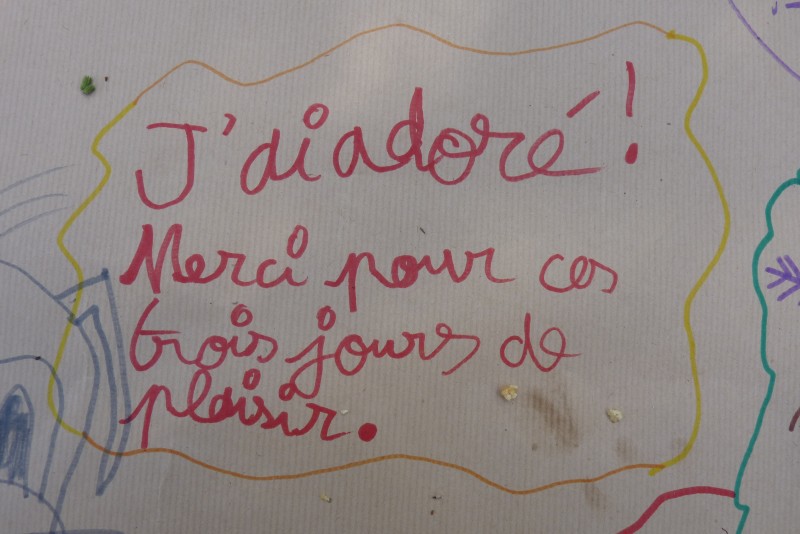 J'ai adoré !
Merci pour ces
trois jours de
plaisir.